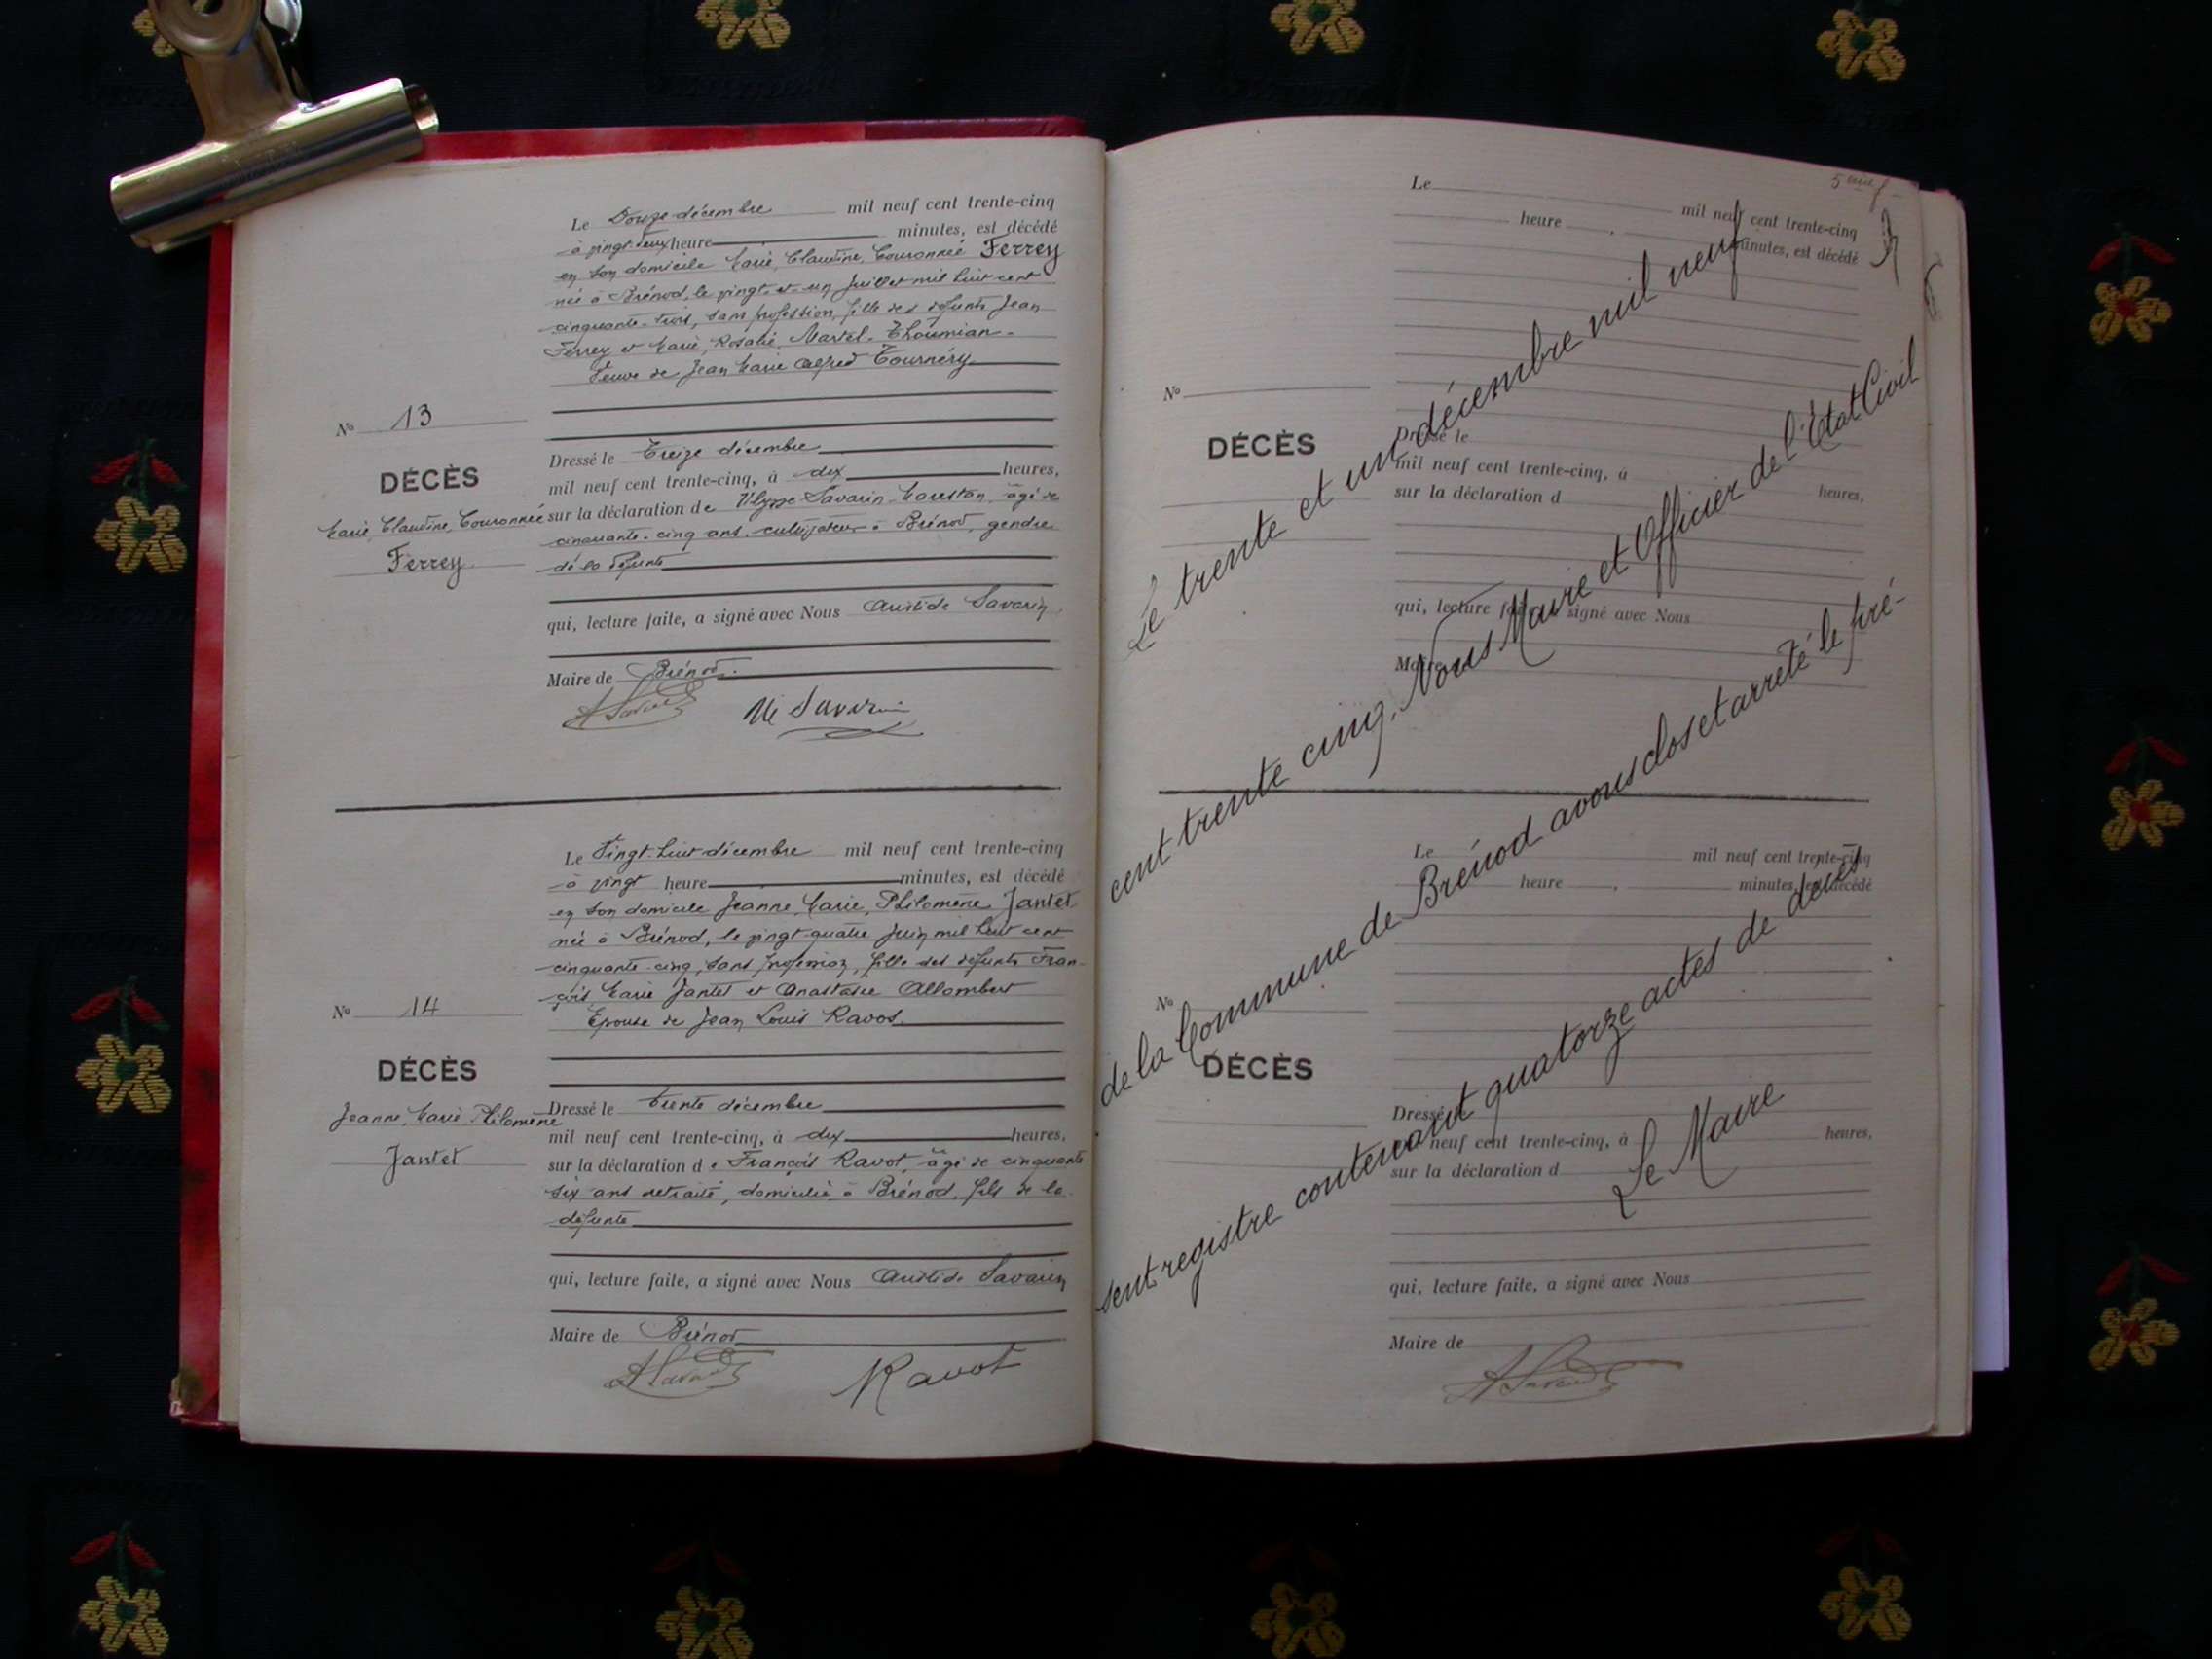 Le Douze décembre mil neuf cent trente-cinq
à vingt-deux heure minutes, est décédé
en son domicile Marie, Claudine, Couronnée Ferrey
née à Brénod, le vingt-et-un Juillet mil huit cent
cinquante-trois, sans profession, fille des défunts Jean
Ferrey et Marie, Rosalie, Martel-Thoumian-
Veuve de Jean Marie Alfred Tournéry
No 13
DÉCÈS
Marie, Claudine, Couronnée
Ferrey
Dressé le Treize décembre
mil neuf cent trente-cinq, à dix heures,
sur la déclaration de Ulysse Savarin-Mareston, âgé de
cinquante-cinq ans, cultivateur à Brénod, gendre
de la défunte
qui, lecture faite, a signé avec Nous Aristide Savarin
Maire de Brénod.
A Savarin Ul Savarin
Le Vingt-huit décembre mil neuf cent trente-cinq
à vingt heure minutes, est décédé
en son domicile Jeanne, Marie, Philomène Jantet
née à Brénod, le vingt-quatre Juin mil huit cent
cinquante-cinq, sans profession, fille des défunts Fran-
çois, Marie Jantet et Anastasie Allombert
Epouse de Jean Louis Ravot.
No 14
DÉCÈS
Jeanne, Marie, Philomène
Jantet
Dressé le Trente décembre
mil neuf cent trente-cinq, à dix heures,
sur la déclaration de François Ravot, âgé de cinquante
six ans retraité, domicilié à Brénod, fils de la
défunte
qui, lecture faite, a signé avec Nous Aristide Savarin
Maire de Brénod
A Savarin Ravot
Le mil neuf cent trente-cinq
heure minutes, est décédé
No
DÉCÈS
Dressé le
mil neuf cent trente-cinq, à heures,
sur la déclaration d
qui, lecture faite, a signé avec Nous
Maire de
Le trente et un décembre mil neuf
cent trente cinq, Nous Maire et Officier de l'Etat Civil
de la Commune de Brénod avons clos et arreté le pré-
sent registre contenant quatorze actes de décès
Le Maire
Le mil neuf cent trente-cinq
heure minutes, est décédé
No
DÉCÈS
Dressé le
mil neuf cent trente-cinq, à heures,
sur la déclaration d
qui, lecture faite, a signé avec Nous
Maire de
A Savarin